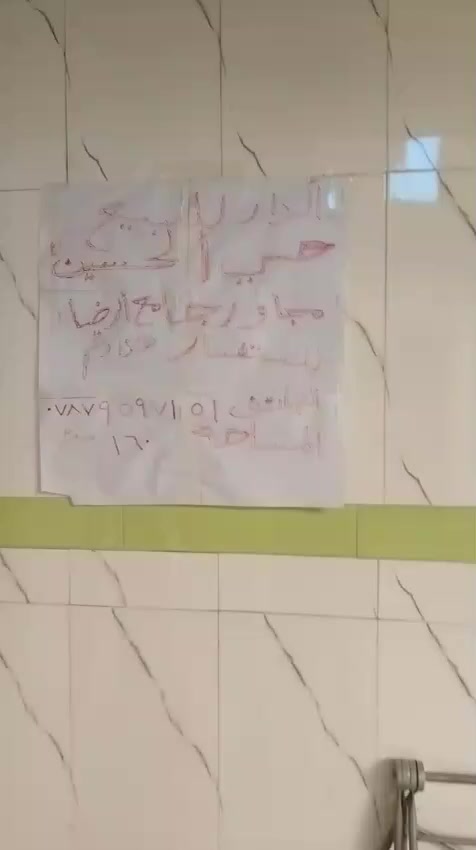 الدار للبيع
حي الحسين
مجاور جامع الرضا
للاستفسار
الهاتف ٠٧٨٧٩٥٩٧١٥١
المساحة ١٦٠